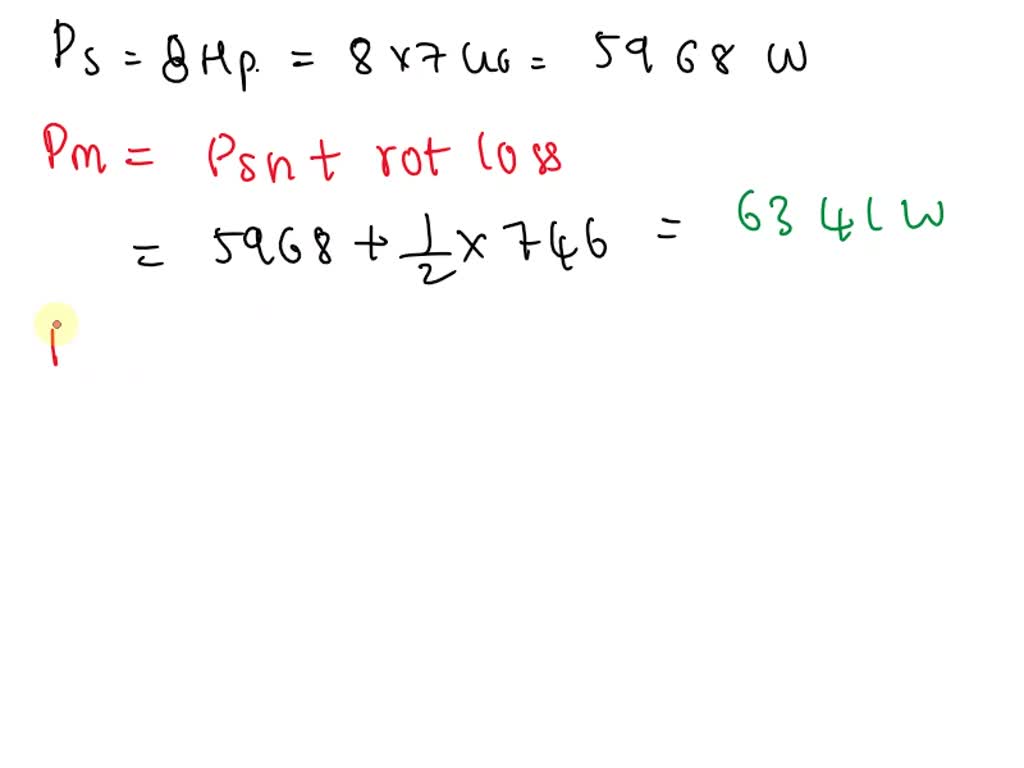 Ps = 8 Hp. = 8 x 746 = 5968 W
Pm = Psh + rot loss
= 5968 + 1/2 x 746 = 6341 W
P